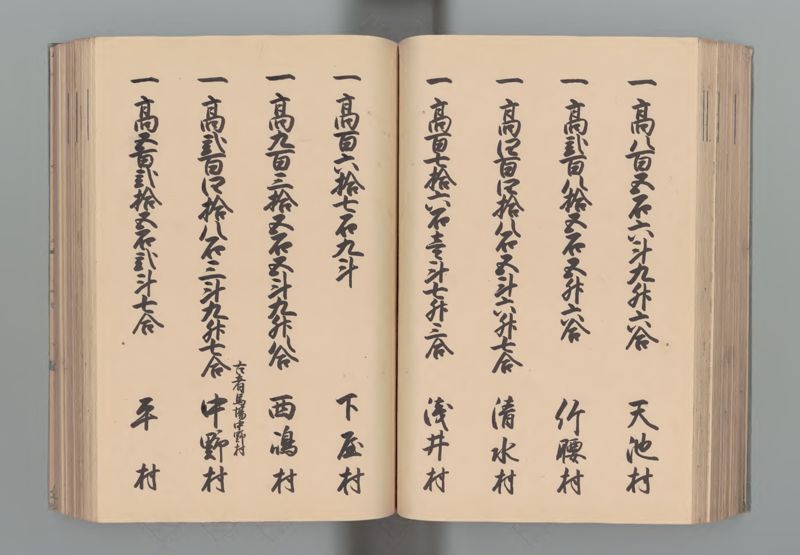 一高八百五石六斗九升六合 天池村
一高弐百八拾五石五升六合 竹腰村
一高四百四拾八石五斗六升七合 清水村
一高百七拾六石壱斗七升三合 浅井村
一高百六拾七石九斗 下屋村
一高九百三拾五石五斗九升八合 西嶋村
一高弐百四拾八石三斗九升七合 中野村
古者馬場中野村
一高五百弐拾五石弐斗七合 平村